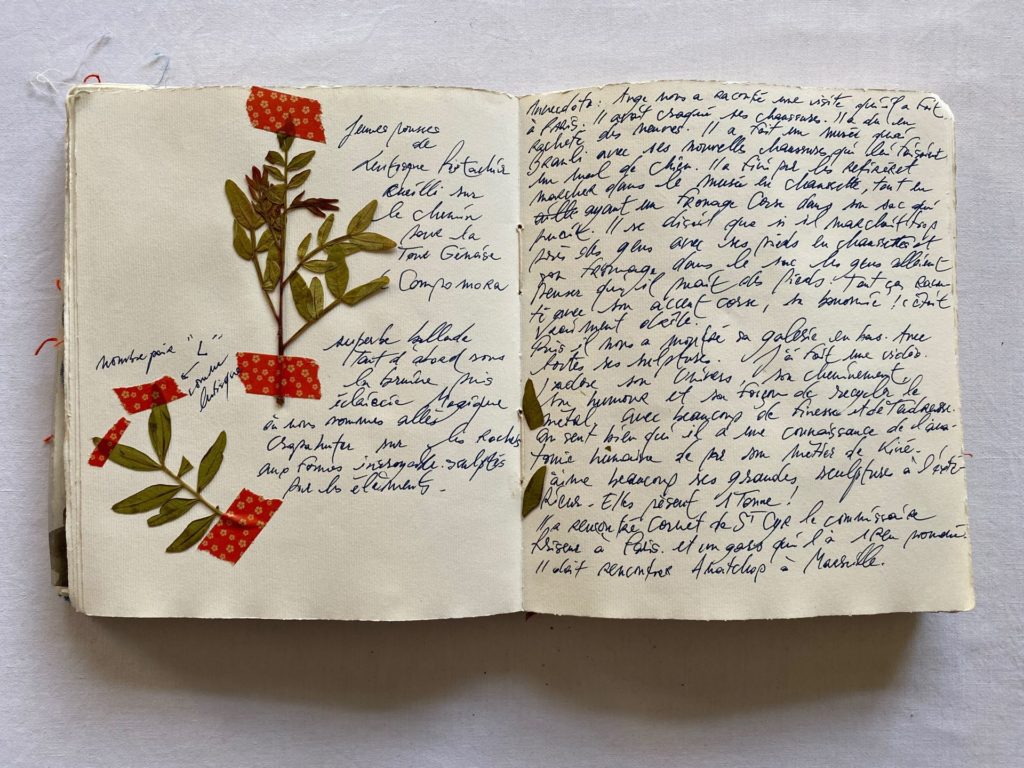 jeunes pousses
de
lentisque Pistachier
cueilli sur
le chemin
pour la
Tour Génoise
Campomoro
nombre pair "L"
comme
lentisque
superbe ballade
tout d'abord sous
la brume puis
éclaircie Magique
où nous sommes allés
crapahuter sur les Roches
aux formes incroyables sculptées
par les éléments.
Anecdote: Ange nous a raconté une visite qu'il a fait
à PARIS. Il avait craqué ses chaussures. Il a dû en
Racheté des neuves. Il a fait un musée quai
Branli avec ses nouvelles chaussures qui lui faisaient
un mal de chien. Il a fini par les retirer et
marcher dans le musée en chaussette, tout en
ayant un fromage Corse dans son sac qui
pue. Il se disait que si il marchait trop
près des gens avec ses pieds en chaussettes et
son fromage dans le sac les gens allaient
penser qu'il puait des pieds. Tout ça racon-
té avec son accent corse, sa bonomie! c'était
vraiment drôle.
Puis il nous a montré sa galerie en bas. Avec
toutes ses sculptures. J'ai fait une vidéo.
J'adore son univers, son cheminement,
son humour et sa façon de recycler le
métal, avec beaucoup de finesse et de tadresse.
On sent bien qu'il a une connaissance de l'ana-
tomie humaine de par son métier de Kiné.
J'aime beaucoup ses grandes sculptures à l'exté-
rieur. Elles pèsent 1 Tonne!
Il a rencontré Cornet de St Cyr le commissaire
Priseur à Paris. et un gars qui l'a 1 peu
Il doit rencontrer à Marseille.